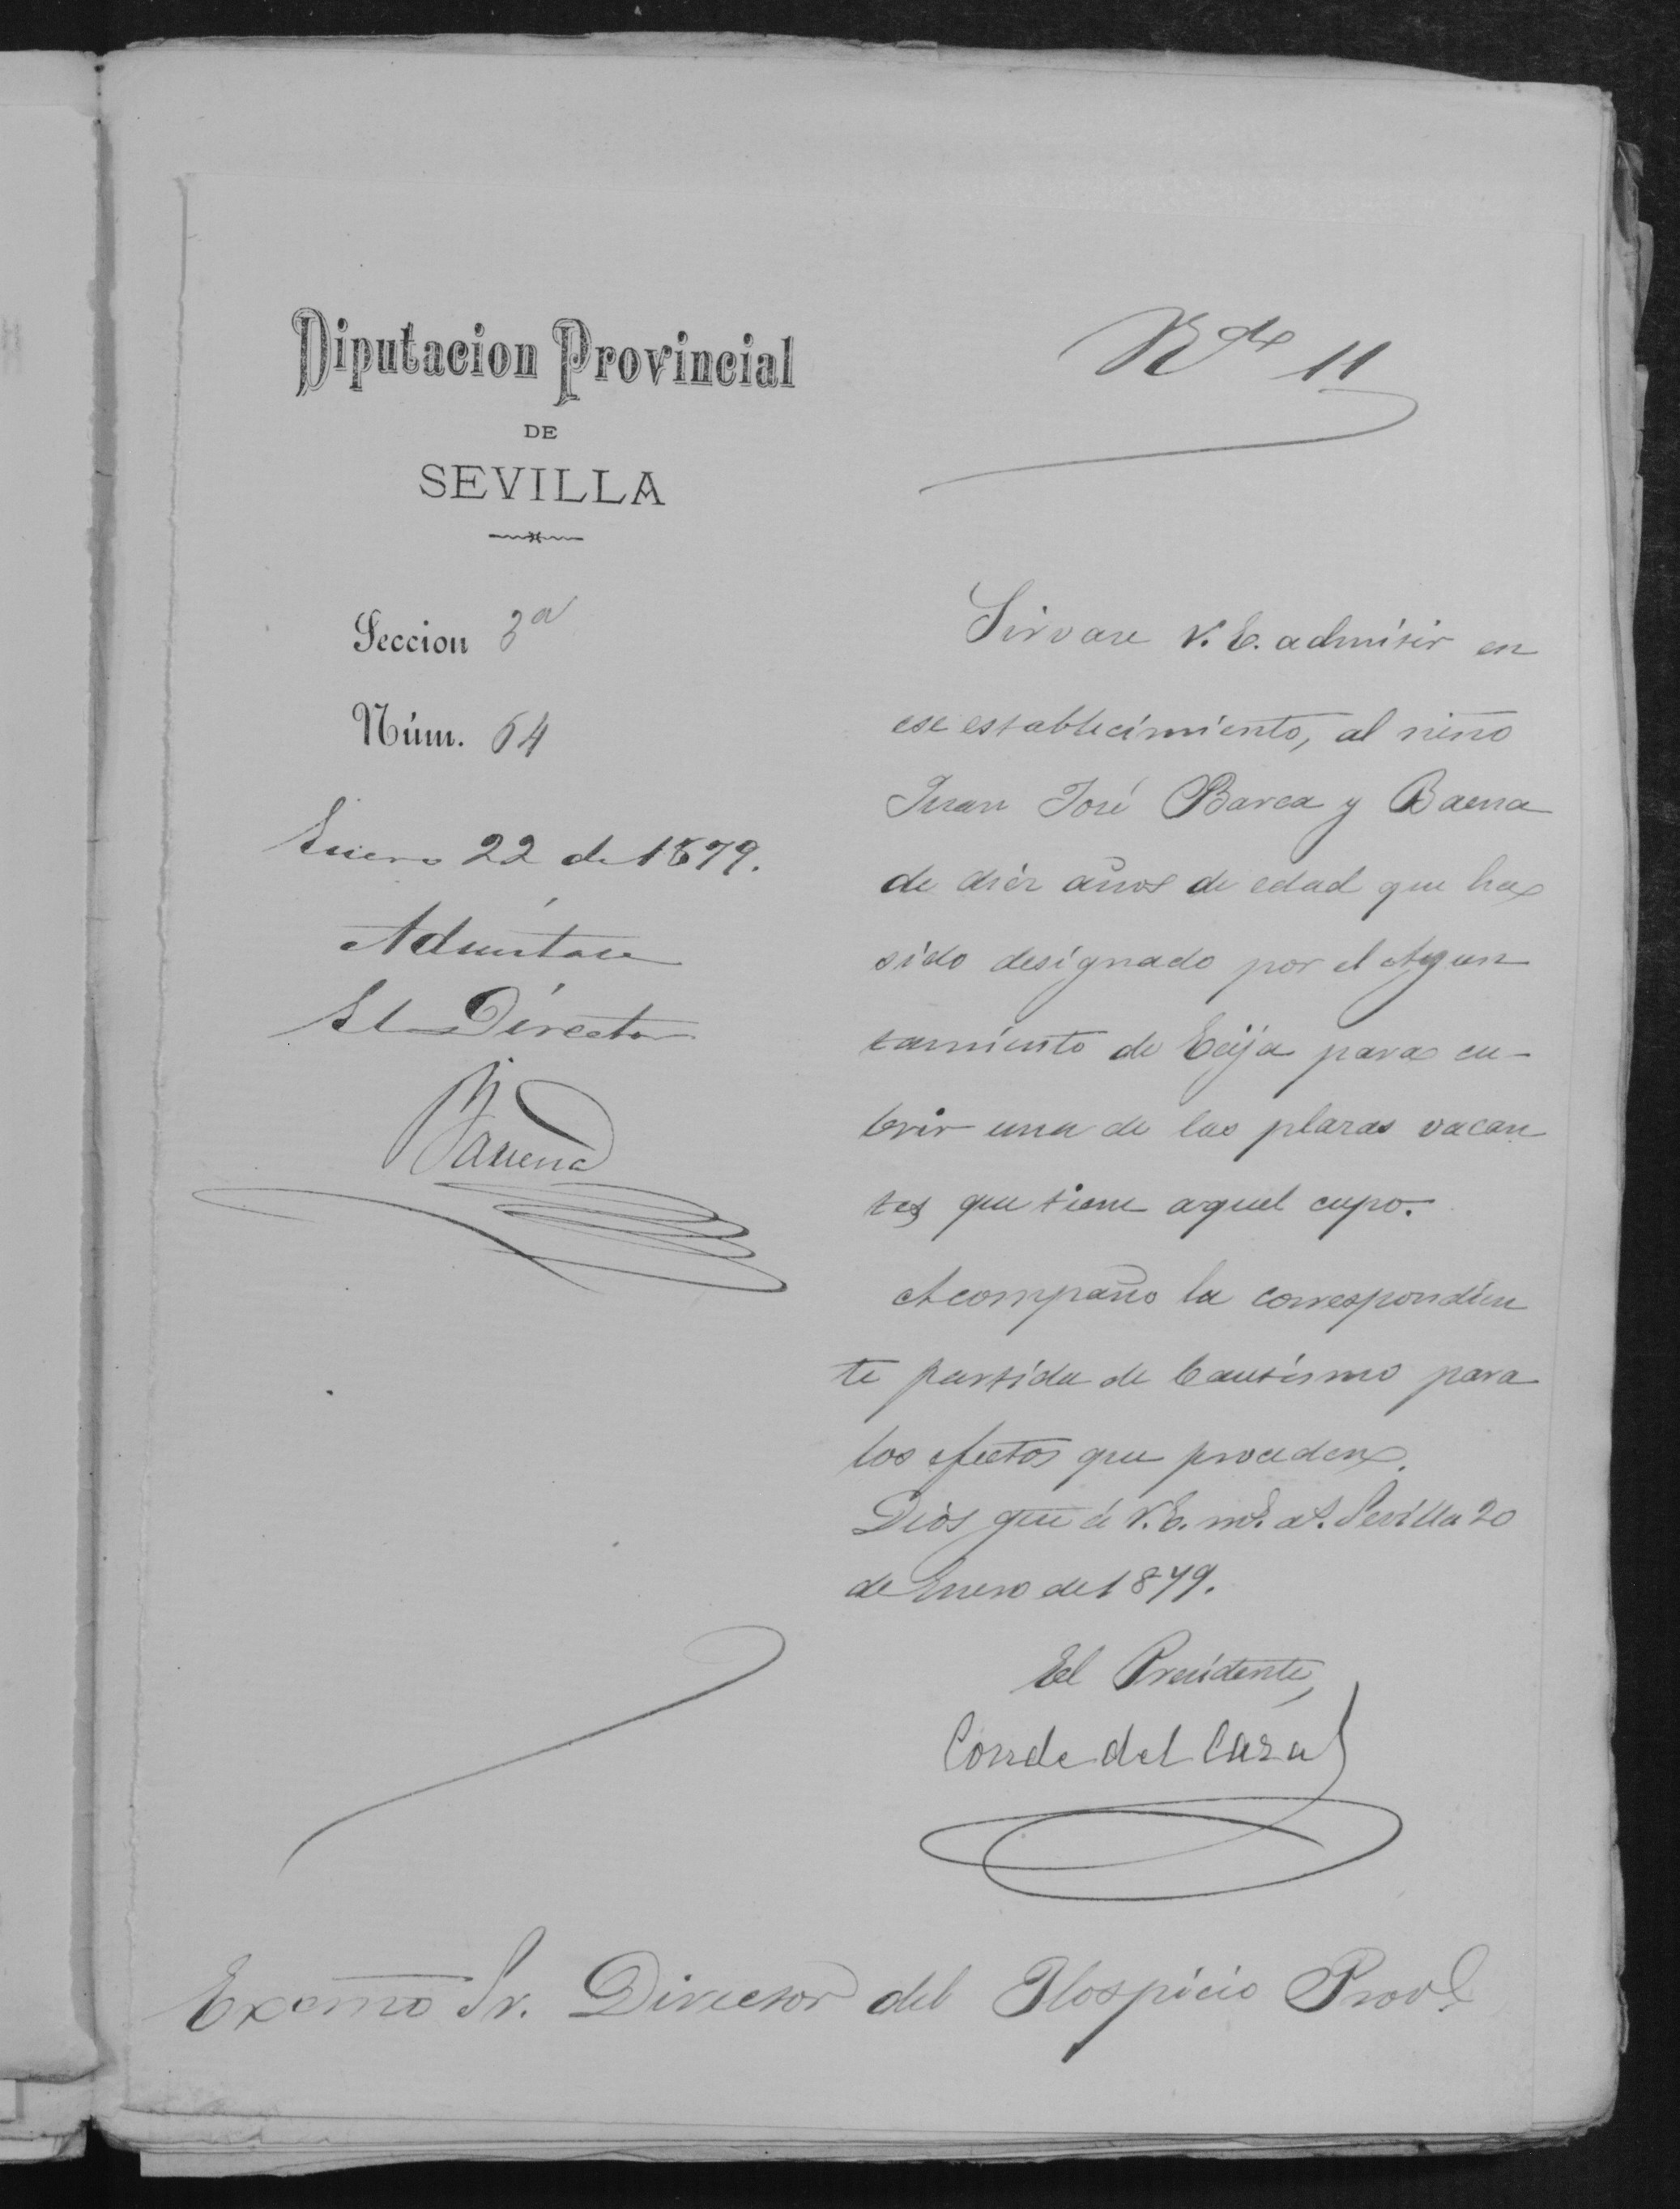 Diputacion Provincial
DE
SEVILLA
Seccion 3ª
Núm. 64
Enero 22 de 1879.
Admitase
El Director
Nº 11
Sirvase V.E. admitir en
ese establecimiento, al niño
Juan José Barca y Baena
de diez años de edad que ha
sido designado por el Ayun
tamiento de Ecija para cu-
brir una de las plazas vacan
tes que tiene aquel cupo.
Acompaño la correspondien
te partida de bautismo para
los efectos que proceden.
Dios gue á V.E. ms. as. Sevilla 20
de Enero de 1879.
El Presidente,
Conde del Cazal
Excmo Sr. Director del Hospicio Provl.